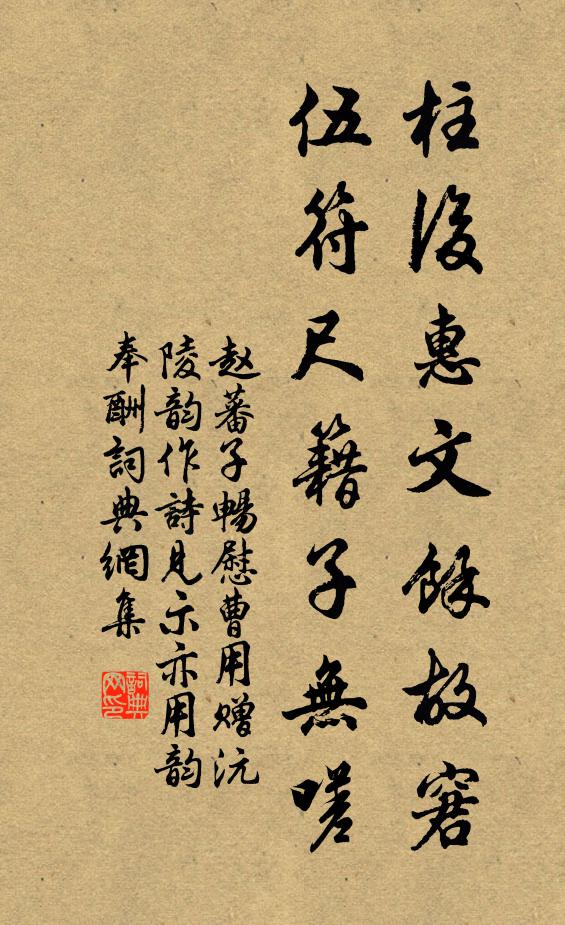 柱後惠文餘故窘
伍符尺籍子無嗟
赵蕃子暢慰曹用贈沅
陵韵作詩見示亦用韵
奉酬詞典網集
詞典
网印